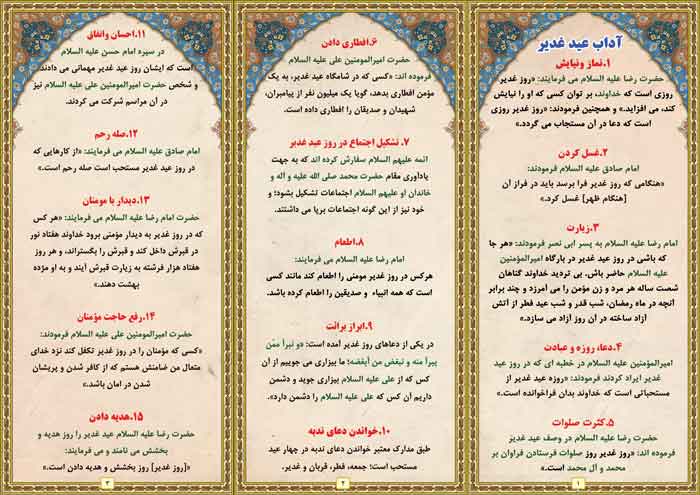 آداب عید غدیر
۱.نماز ونیایش
حضرت رضا علیه السلام می فرمایند: «روز غدیر
روزی است که خداوند، بر توان کسی که او را نیایش
کند، می افزاید.» و همچنین فرمودند: «روز غدیر روزی
است که دعا در آن مستجاب می گردد.»
۲.غسل کردن
امام صادق علیه السلام فرمودند:
«هنگامی که روز غدیر فرا برسد باید در فراز آن
[هنگام ظهر] غسل کرد.»
۳.زیارت
امام رضا علیه السلام به پسر ابی نصر فرمودند: «هر جا
که باشی در روز عید غدیر در بارگاه امیرالمؤمنین
علیه السلام حاضر باش. بی تردید خداوند گناهان
شصت ساله هر مرد و زن مؤمن را می آمرزد و چند برابر
آنچه در ماه رمضان، شب قدر و شب عید فطر از آتش
آزاد ساخته در آن روز آزاد می سازد.»
۴.دعا، روزه و عبادت
امیرالمؤمنین علیه السلام در خطبه ای که در روز عید
غدیر ایراد کردند فرمودند: «روزه عید غدیر از
مستحباتی است که خداوند بدان فراخوانده است.»
۵.کثرت صلوات
حضرت رضا علیه السلام در وصف عید غدیر
فرموده اند: «روز غدیر روز صلوات فرستادن فراوان بر
محمد و آل محمد است.»
۱
۶.افطاری دادن
حضرت امیرالمومنین علی علیه السلام
فرموده اند: «کسی که در شامگاه عید غدیر، به یک
مؤمن افطاری بدهد، گویا یک میلیون نفر از پیامبران،
شهیدان و صدیقان را افطاری داده است.
۷. تشکیل اجتماع در روز عید غدیر
ائمه علیهم السلام سفارش کرده اند که به جهت
یادآوری مقام حضرت محمد صلی الله علیه و آله و
خاندان او علیهم السلام اجتماعات تشکیل بشود؛ و
خود نیز از این گونه اجتماعات برپا می داشتند.
۸.اطعام
امام رضا علیه السلام می فرمایند:
هرکس در روز غدیر مومنی را اطعام کند مانند کسی
است که همه انبیاء و صدیقین را اطعام کرده باشد.
۹.ابراز برائت
در یکی از دعاهای روز غدیر آمده است: «و نبرأ ممّن
یبرأ منه و نبغض من أبغضه؛ ما بیزاری می جوییم از آن
کس که از علی علیه السلام بیزاری جوید و دشمن
داریم آن کس که علی علیه السلام را دشمن دارد».
۱۰.خواندن دعای ندبه
طبق مدارک معتبر خواندن دعای ندبه در چهار عید
مستحب است؛ جمعه، فطر، قربان و غدیر.
۲
۱۱.احسان وانفاق
در سیره امام حسن علیه السلام
است که ایشان روز عید غدیر مهمانی می دادند
و شخص حضرت امیرالمؤمنین علی علیه السلام نیز
در آن مراسم شرکت می کردند.
۱۲.صله رحم
امام صادق علیه السلام می فرمایند: «از کارهایی که
در روز عید غدیر مستحب است صله رحم است.»
۱۳.دیدار با مومنان
حضرت امام رضا علیه السلام می فرمایند: «هر کس
که در روز غدیر به دیدار مؤمنی برود خداوند هفتاد نور
در قبرش داخل کند و قبرش را بگستراند، و هر روز
هفتاد هزار فرشته به زیارت قبرش آیند و به او مژده
بهشت دهند.»
۱۴.رفع حاجت مؤمنان
حضرت امیرالمومنین علی علیه السلام فرمودند:
«کسی که مؤمنان را در روز غدیر تکفل کند نزد خدای
متعال من ضامنش هستم که از کافر شدن و پریشان
شدن در امان باشد.»
۱۵.هدیه دادن
حضرت رضا علیه السلام عید غدیر را روز هدیه و
بخشش می نامند و می فرمایند:
«[روز غدیر] روز بخشش و هدیه دادن است.»
۳